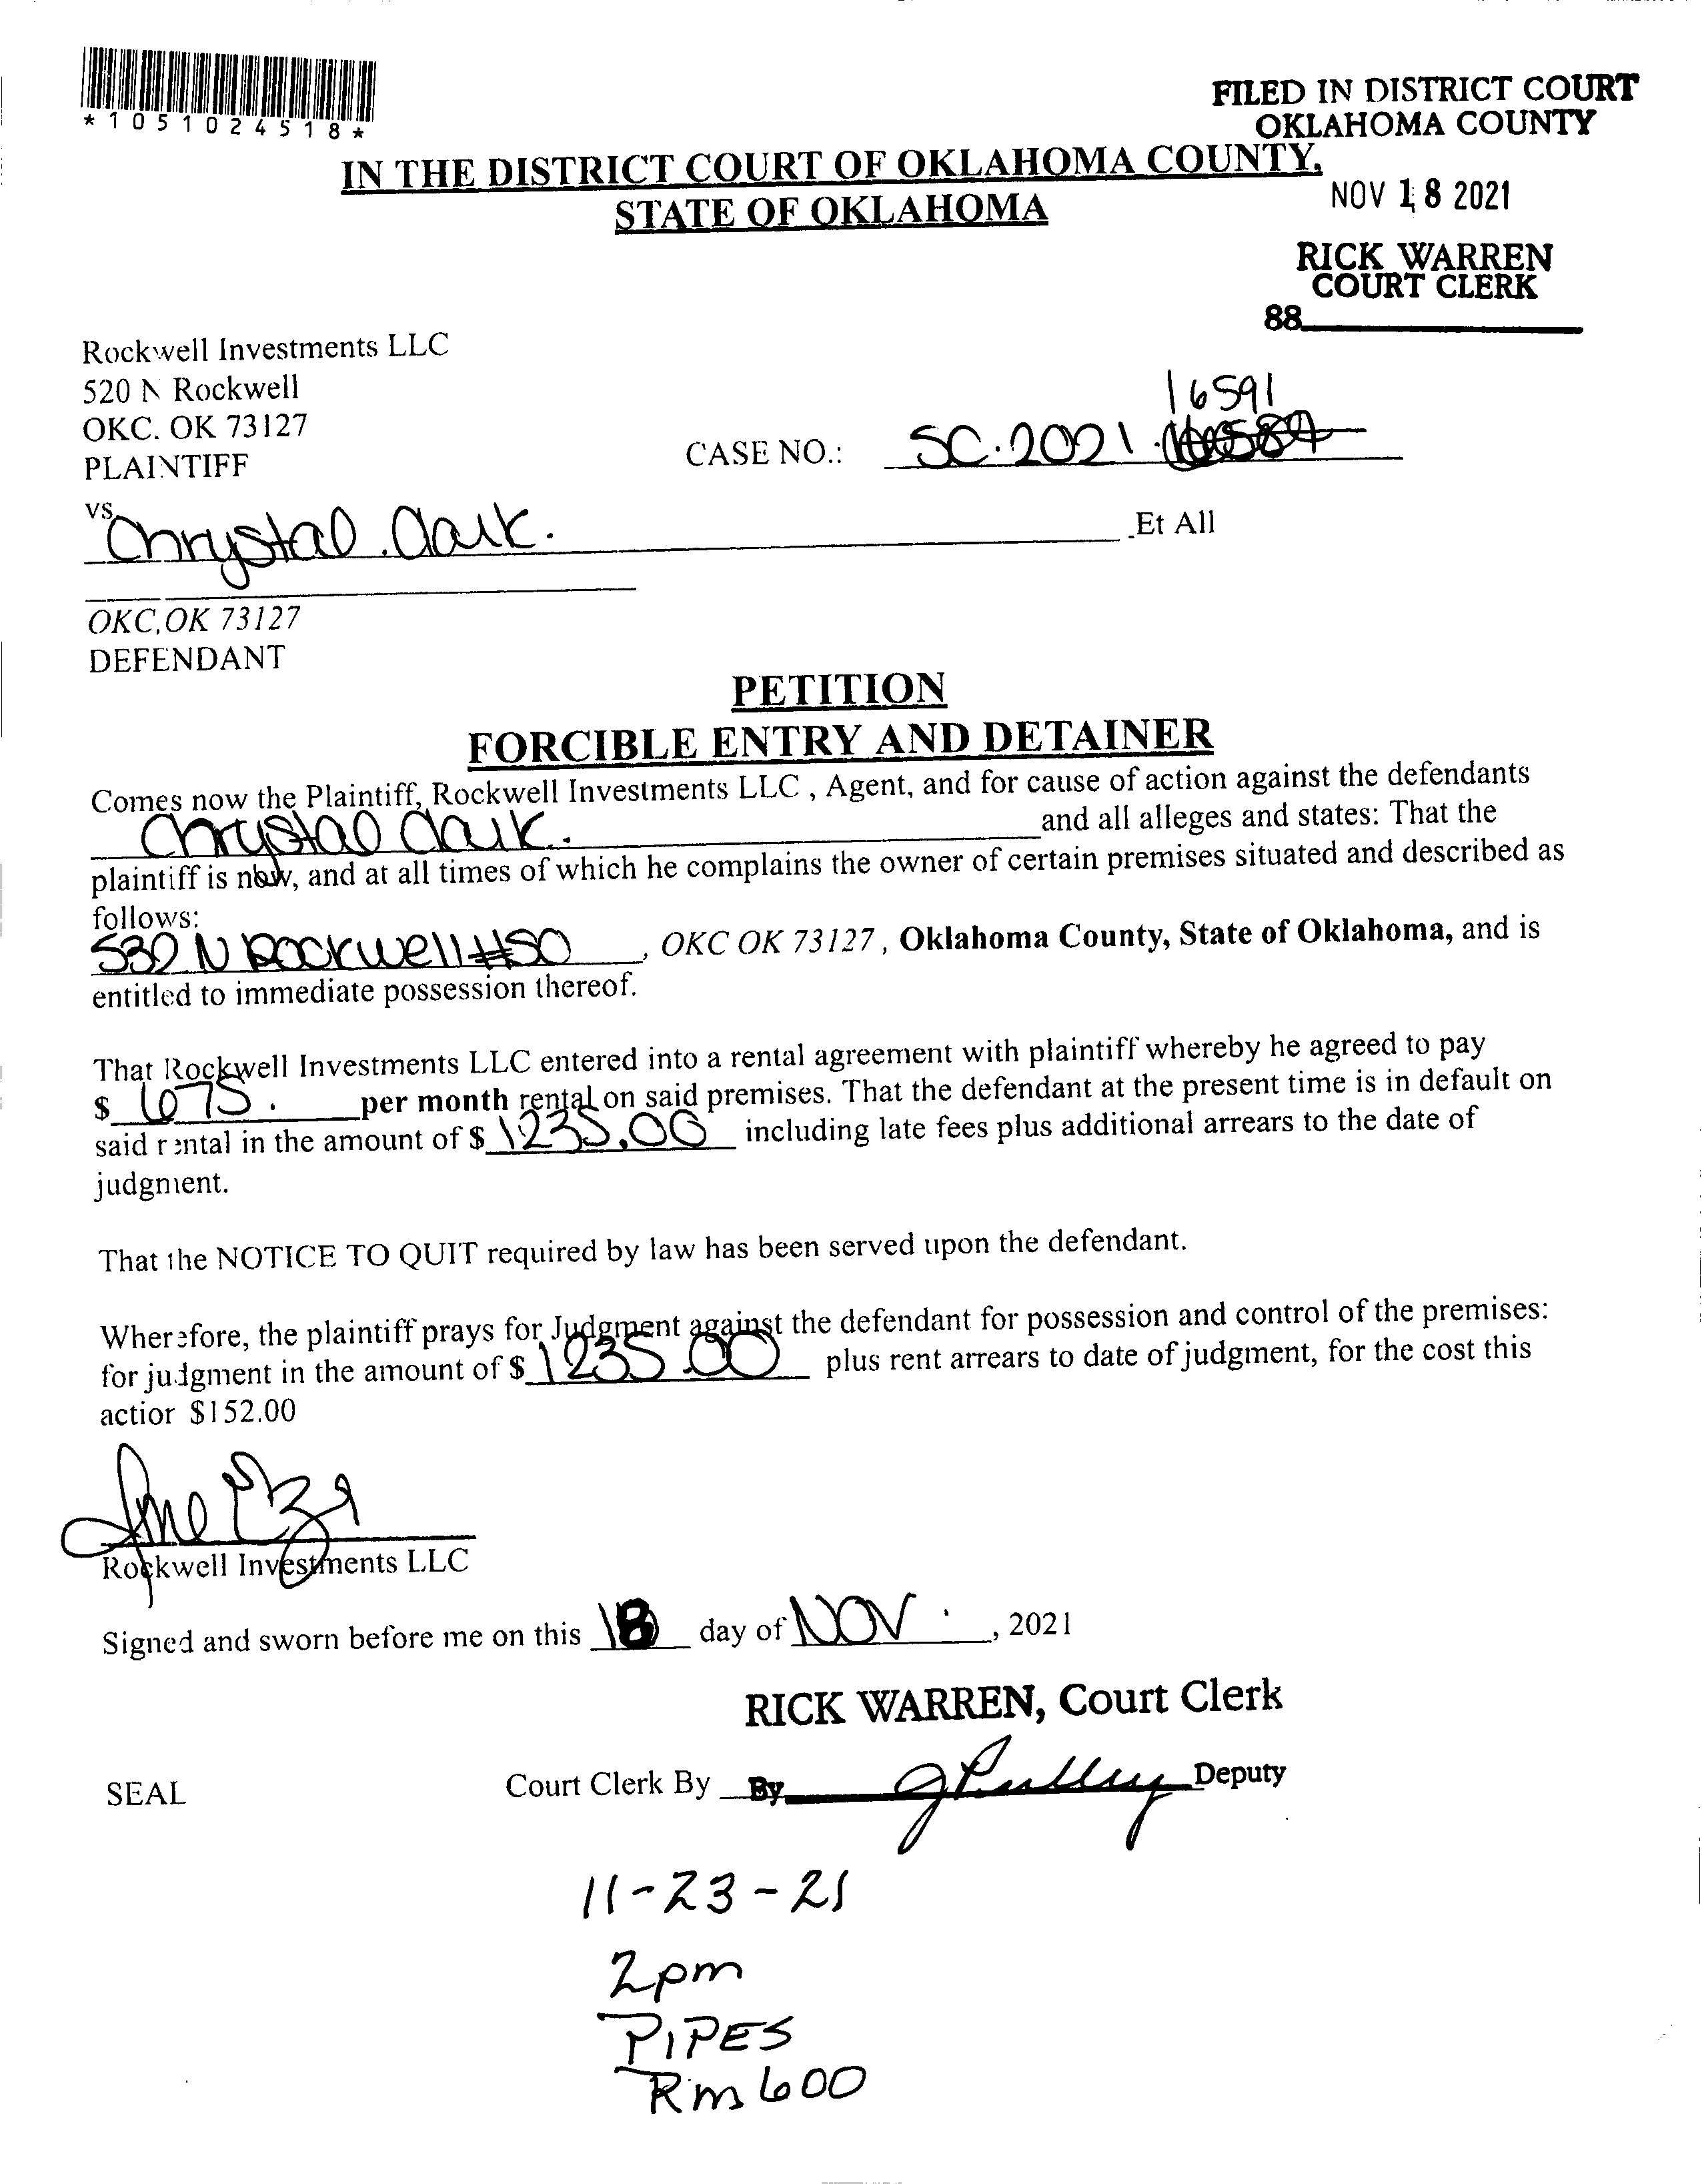 *1051024518*
FILED IN DISTRICT COURT
OKLAHOMA COUNTY
IN THE DISTRICT COURT OF OKLAHOMA COUNTY,
STATE OF OKLAHOMA
NOV 18 2021
RICK WARREN
COURT CLERK
88
Rockwell Investments LLC
520 N Rockwell
OKC. OK 73127
PLAINTIFF
16591
CASE NO.: SC.2021.
vs.
Chrystal Clark. Et All
OKC, OK 73127
DEFENDANT
PETITION
FORCIBLE ENTRY AND DETAINER
Comes now the Plaintiff, Rockwell Investments LLC , Agent, and for cause of action against the defendants
Chrystal Clark. and all alleges and states: That the
plaintiff is now, and at all times of which he complains the owner of certain premises situated and described as
follows:
532 N Rockwell #50 , OKC OK 73127 , Oklahoma County, State of Oklahoma, and is
entitled to immediate possession thereof.
That Rockwell Investments LLC entered into a rental agreement with plaintiff whereby he agreed to pay
$ 675. per month rental on said premises. That the defendant at the present time is in default on
said rental in the amount of $ 1235.00 including late fees plus additional arrears to the date of
judgment.
That the NOTICE TO QUIT required by law has been served upon the defendant.
Wherefore, the plaintiff prays for Judgment against the defendant for possession and control of the premises:
for judgment in the amount of $ 1235.00 plus rent arrears to date of judgment, for the cost this
action $152.00
Rockwell Investments LLC
Signed and sworn before me on this 18 day of NOV. , 2021
RICK WARREN, Court Clerk
SEAL
Court Clerk By By Deputy
11-23-21
2pm
PIPES
Rm 600